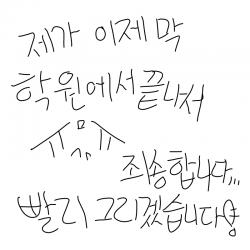 제가 이제 막
학원에서 끝나서
ㅠㅁㅠ
죄송합니다,,,
빨리 그리겠습니다